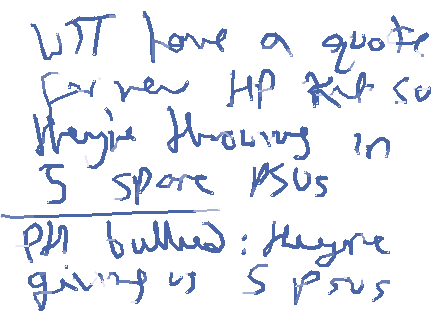 WTT have a quote
for new HP kit so
they're throwing in
5 spare PSUs
PM bullied: they're
giving us 5 psus